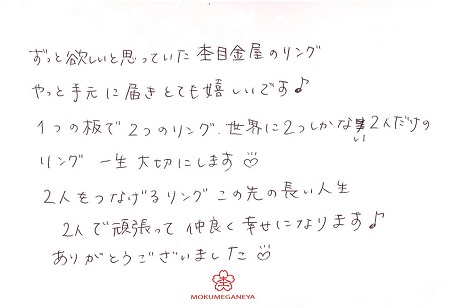 ずっと欲しいと思っていた杢目金屋のリング
やっと手元に届きとても嬉しいです♪
1つの板で2つのリング、世界に2つしかない2人だけの
リング 一生大切にします♡
2人をつなげるリング この先の長い人生
2人で頑張って 仲良く幸せになります♪
ありがとうございました♡
杢
MOKUMEGANEYA